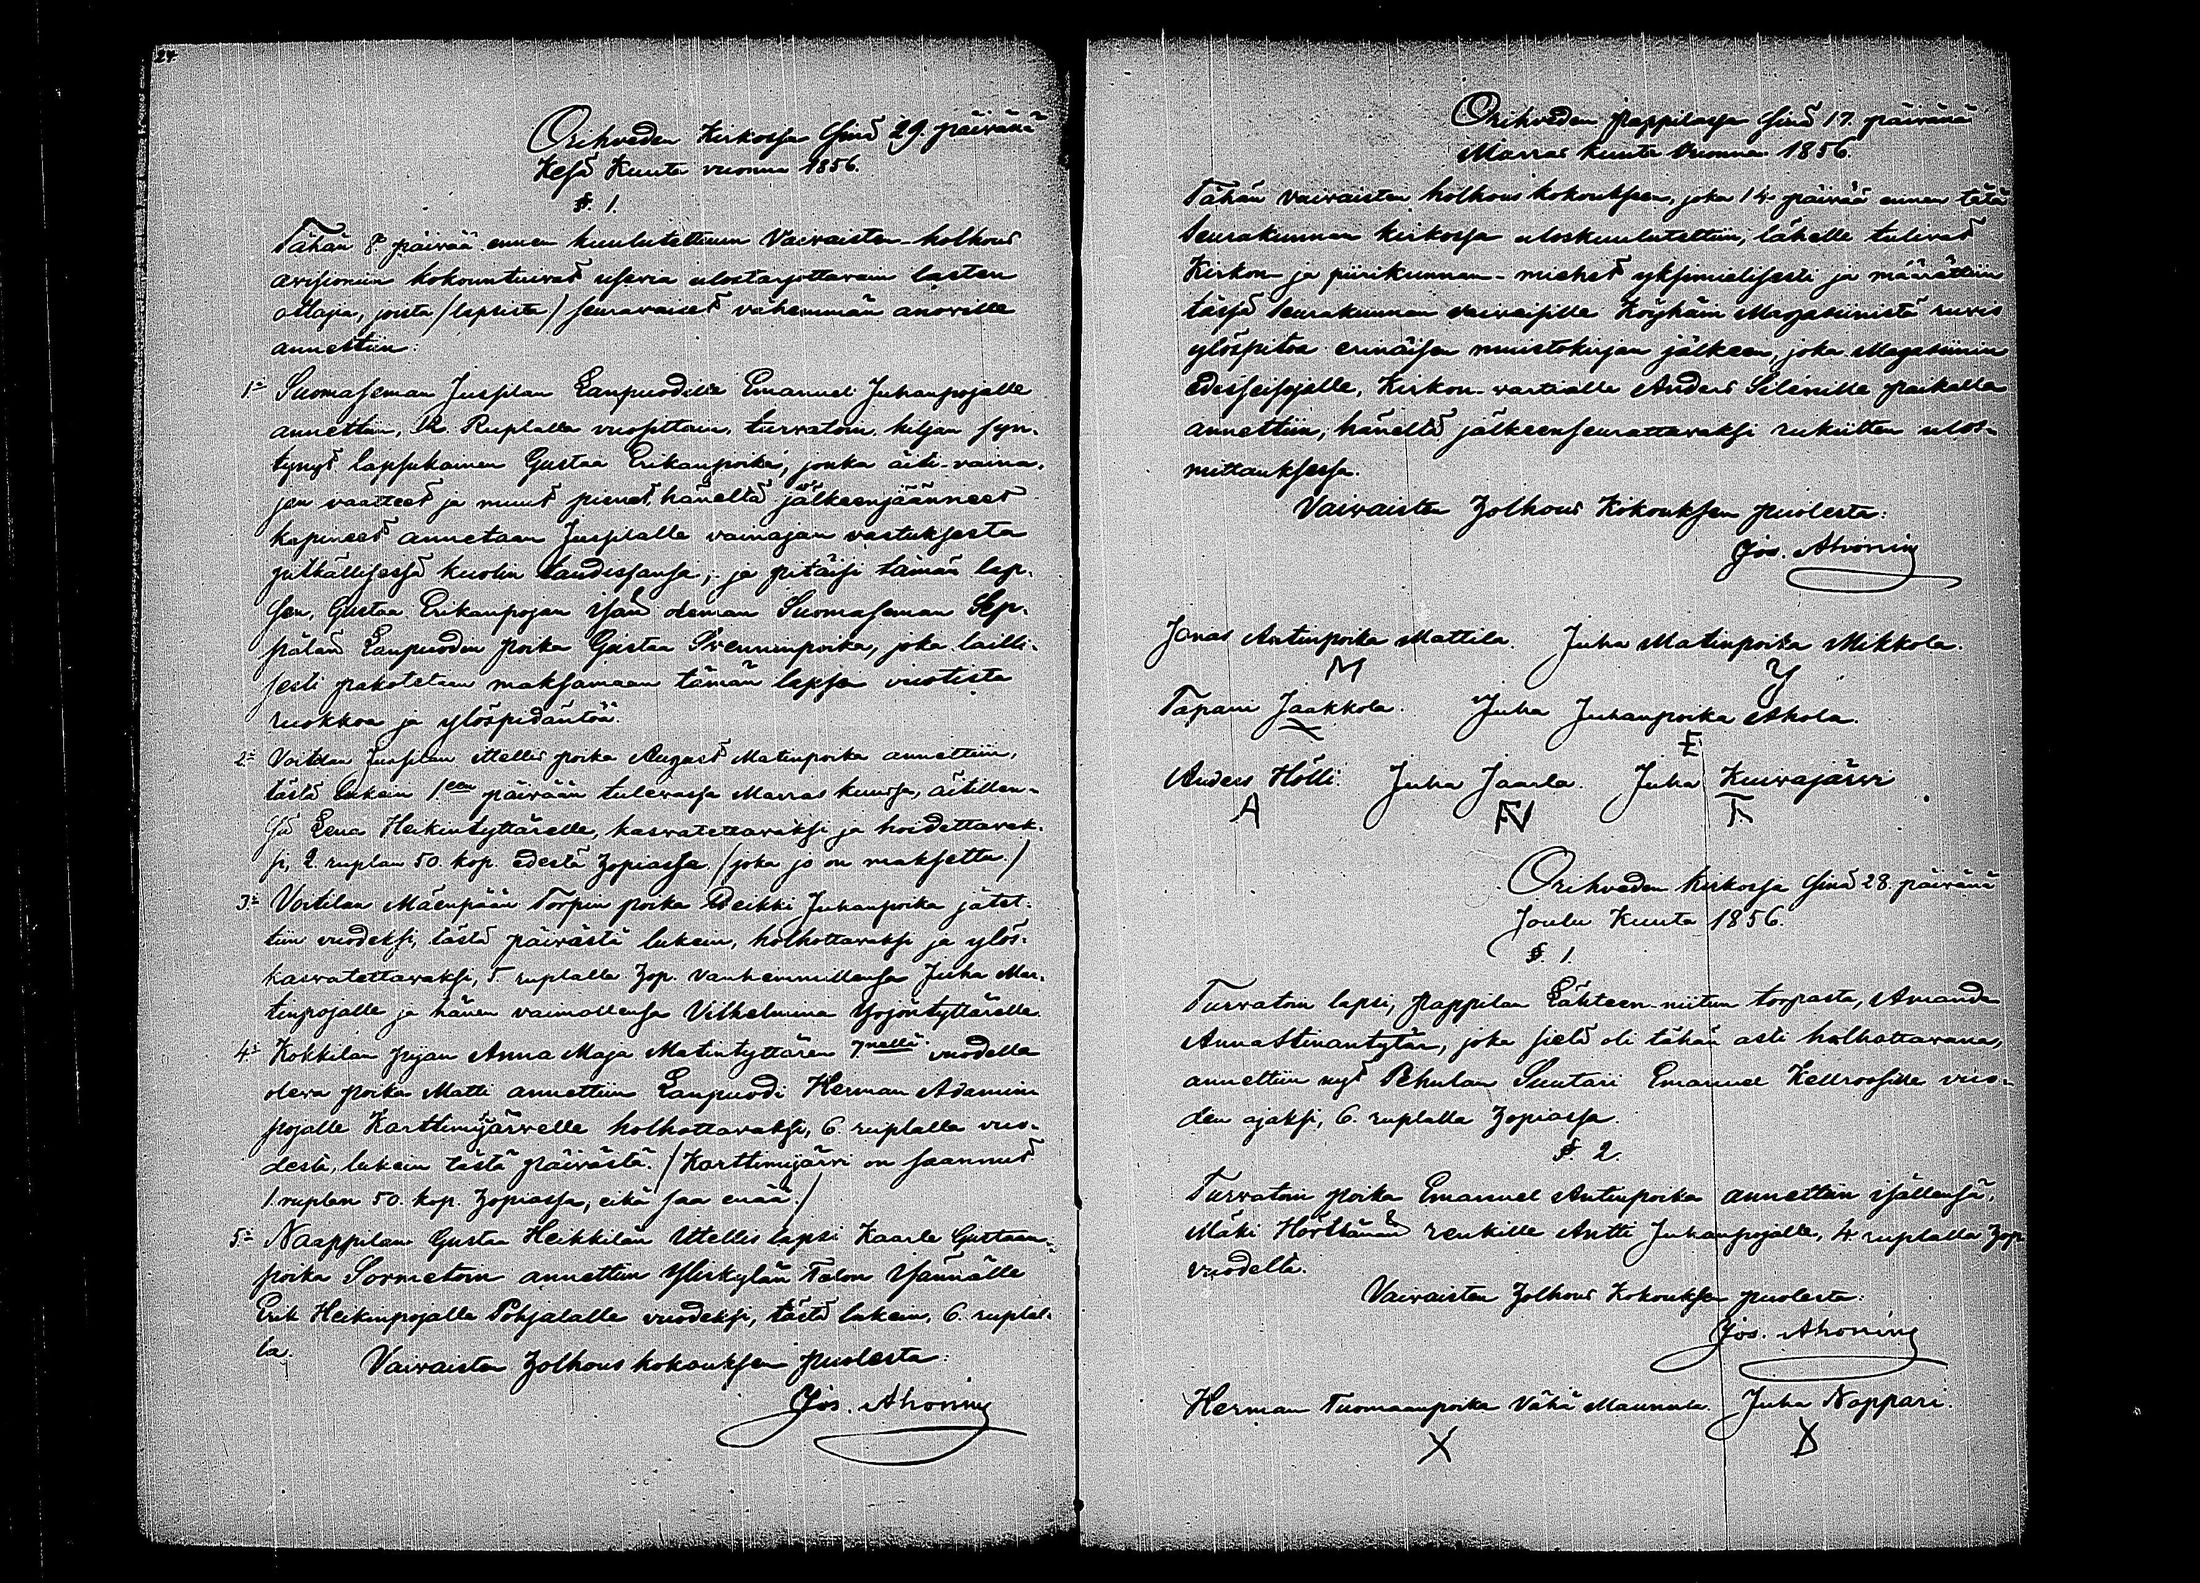 24.
Orihveden Kirkossa Sinä 29. päivänä
Kesä Kuuta vuonna 1856.
§. 1.
Tähän 8 päivää ennen kuulutettuun Vaivaisten-holhous
kokountuivat usseia ulostarjottavain lasten
ottajia, joista /lapsista/ seuraavaiset vähemmän anoville
annettiin:
1:o Suomaseman Jussilan Lanpuodille Emanuel Juhanpojalle
annettiin, 12 Ruplalla vuosittain, turvatoin, hiljan syn-
tynyt lapsukainen Gustaa Erikanpoika, jonka äiti-vaina-
jan vaatteet ja muut pienet, häneltä jälkeenjääneet
kapineet annetaan Jussilalle vainajan vastuksesta
pitkällisessä kuolin taudissansa; ja pitäisi tämän lap-
sen, Gustaa Erikanpojan isän oleman Suomaseman Sep-
pälän Lanpuodin poika Gustaa Svenninpoika, joka lailli-
sesti pakotetaan maksamaan tämän lapsen vuotista
ruokkoa ja ylöspidäntöä.
2:o Voitilan Jussilan itellis poika August Matinpoika annettiin,
tästä lukein 1:een päivään tulevassa Marras kuussa, äitillen-
sä Leena Heikintyttärelle, kasvatettavaksi ja hoidettavak-
si, 2 ruplan 50. kop. edestä hopiassa /joka jo on maksettu./
3:o Voitilan Mäenpään Torpin poika Heikki Juhanpoika jätet-
tiin vuodeksi, tästä päivästä lukein, holhottavaksi ja ylös-
kasvatettavaksi, 5. ruplalla hop. vanhemmillensa Juha Mar-
tinpojalle ja hänen vaimollensa Vilhelmina Yrjöntyttärelle.
4:o Kokkilan pijan Anna Maja Matintyttären 7:nellä vuodella
oleva poika Matti annettiin Lanpuodi Herman Adamin
pojalle Karttimojärvelle holhottavaksi, 6. ruplalla vuo-
desta, lukein tästä päivästä. /Karttimojärvi on saannut
1. ruplan 50. kop. hopiassa, eikä saa enää./
5:o Naappilan Gustaa Heikkilän Itellis lapsi Kaarle Gustaan-
poika Sormetoin annettiin Yliskylän Talon Isännälle
Erik Heikinpojalle Pohjalalle vuodeksi, tästä lukein, 6. ruplal-
la.
Vaivaisten Holhous kokouksen puolesta:
Jos. Ahoning
Orihveden pappilassa Sinä 17. päivänä
Marras kuuta Vuonna 1856.
Tähän vaivaisten holhous kokoukseen, joka 14 päivää ennen tätä
Seurakunnan kirkossa uloskuulutettiin, lähelle tulivat
Kirkon- ja piirikunnan-miehet yksimielisesti ja määrättiin
tässä Seurakunnan vaivaisille Köyhäin Magasiinistä ruis
ylöspitoa erinäisen muistokirjan jälkeen, joka Magasiinin
edesseisojalle, Kirkon-vartialle Anders Silénille paikalla
annettiin, häneltä jälkeenseurattavaksi rukiitten ulos-
mittauksessa.
Vaivaisten Holhous Kokouksen puolesta:
Jos. Ahoning
Jonas Antinpoika Mattila. Juha Matinpoika Mikkola.
Tapani Jaakkola. Juha Juhanpoika Ahola.
Anders Hölli. Juha Jaarla. Juha Kuivajärvi
A
Orihveden kirkossa Sinä 28. päivänä
Joulu Kuuta 1856.
§. 1.
Turvatoin lapsi, pappilan Lähteen-niitun torpasta, Amanda
AnnaStinantytär, joka sielä oli tähän asti holhottavana,
annettiin nyt Pehulan Suutari Emanuel Hellroosille vuo-
den ajaksi, 6. ruplalla hopiassa.
§. 2.
Turvatoin poika Emanuel Antinpoika annettiin isällensä,
Mäki Hörttänän renkille Antti Juhanpojalle, 4 ruplalla hop
vuodelta.
Vaivaisten Holhous Kokouksen puolesta:
Jos. Ahoning
Herman Tuomaanpoika Vähä Maunula. Juha Noppari.
X